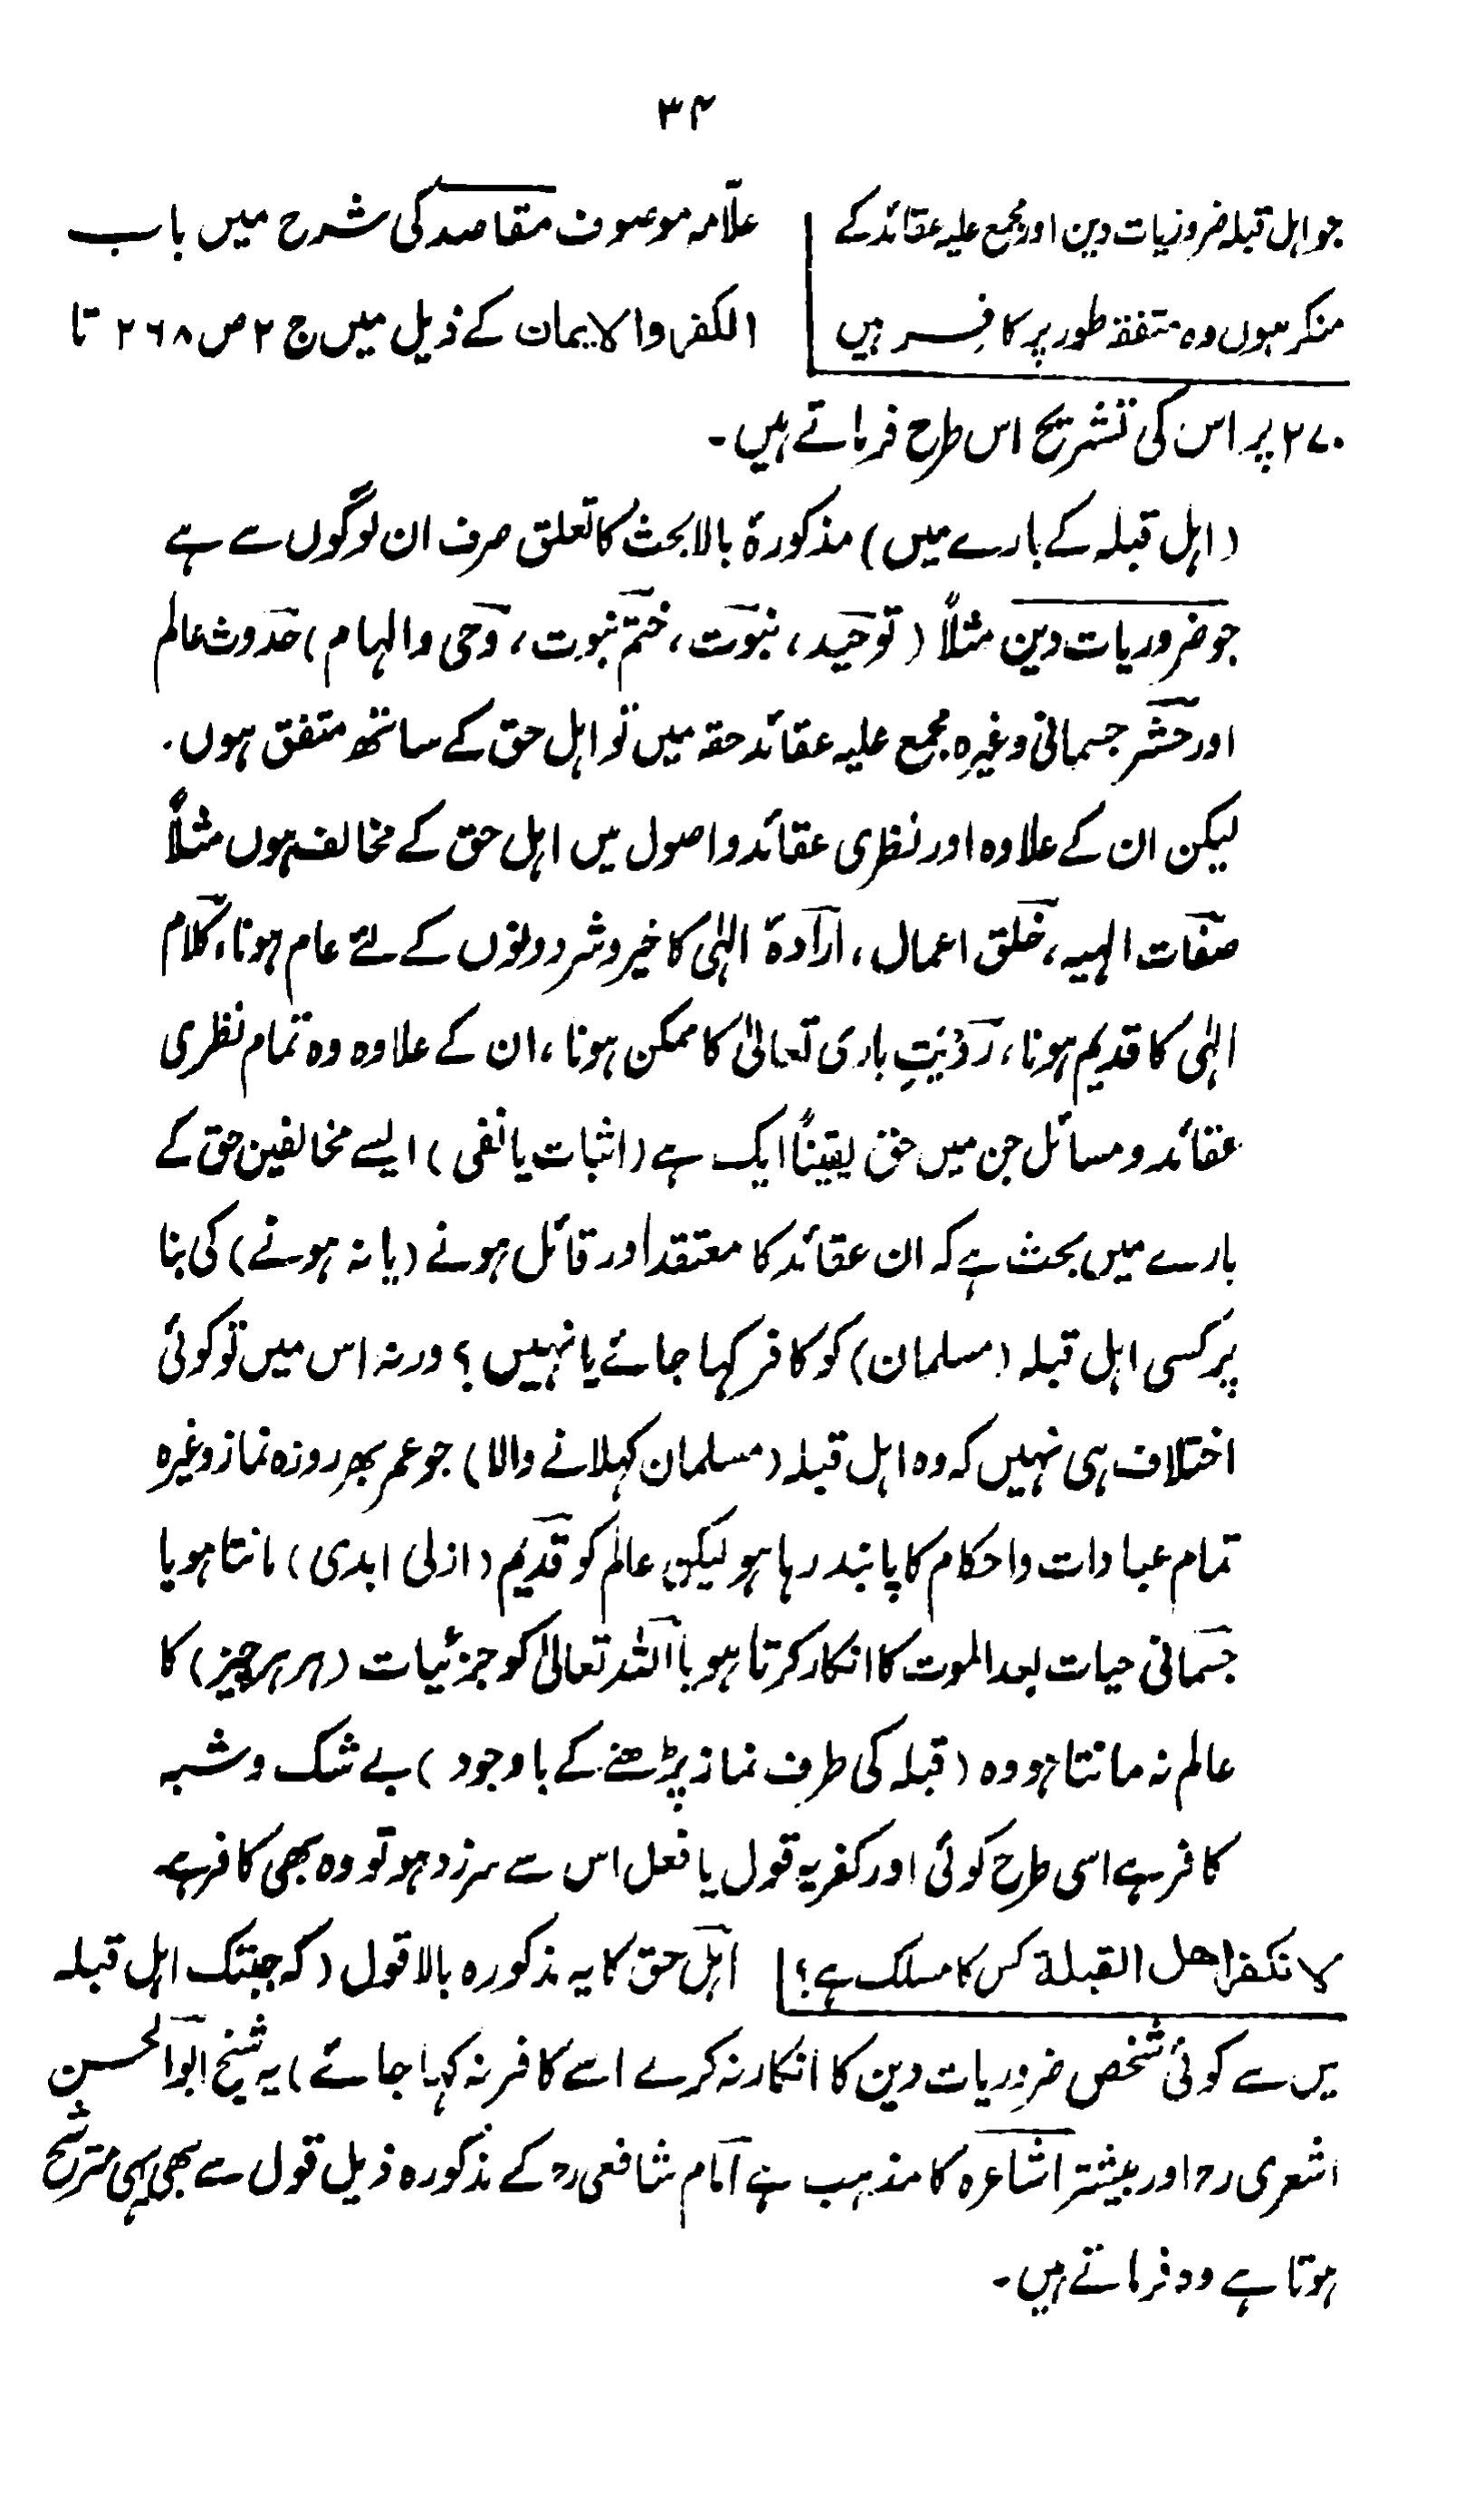 ۳۴
جو اہل قبلہ ضروریات دین اور مجمع علیہ عقائد کے
منکر ہوں وہ متفقہ طور پر کافر ہیں
علّامہ موصوف مقاصد کی شرح میں باب
الکفر والایمان کے ذیل میں ج ۲ ص ۲۶۸ تا
۲۷۰ پر اس کی تشریح اس طرح فرماتے ہیں۔
(اہل قبلہ کے بارے میں) مذکورۂ بالا بحث کا تعلق صرف ان لوگوں سے ہے
جو ضروریات دین مثلاً (توحید، نبوت، ختم نبوت، وحی والہام) حدوث عالم
اور حشر جسمانی وغیرہ مجمع علیہ عقائد حقہ میں تو اہل حق کے ساتھ متفق ہوں۔
لیکن ان کے علاوہ اور نظری عقائد و اصول میں اہل حق کے مخالف ہوں مثلاً
صفات الہیہ، خلق اعمال، ارادۂ الہٰی کا خیر و شر دونوں کے لئے عام ہونا، کلام
الہٰی کا قدیم ہونا، رؤیتِ باری تعالیٰ کا ممکن ہونا، ان کے علاوہ وہ تمام نظری
عقائد و مسائل جن میں حق یقیناً ایک ہے (اثبات یا نفی) ایسے مخالفین حق کے
بارے میں بحث ہے کہ ان عقائد کا معتقد اور قائل ہونے (یا نہ ہونے) کی بنا
پر کسی اہل قبلہ (مسلمان) کو کافر کہا جائے یا نہیں؟ ورنہ اس میں تو کوئی
اختلاف ہی نہیں کہ وہ اہل قبلہ (مسلمان کہلانے والا) جو عمر بھر روزہ نماز وغیرہ
تمام عبادات و احکام کا پابند رہا ہو لیکن عالم کو قدیم (ازلی ابدی) مانتا ہو یا
جسمانی حیات بعد الموت کا انکار کرتا ہو یا اللہ تعالیٰ کو جزئیات (ہر ہر چیز) کا
عالم نہ مانتا ہو وہ (قبلہ کی طرف نماز پڑھنے کے باوجود) بے شک و شبہ
کافر ہے اسی طرح کوئی اور کفریہ قول یا فعل اس سے سرزد ہو تو وہ بھی کافر ہے۔
لا نکفر اھل القبلۃ کس کا مسلک ہے؟
اہل حق کا یہ مذکورہ بالا قول (کہ جبتک اہل قبلہ
میں سے کوئی شخص ضروریات دین کا انکار نہ کرے اسے کافر نہ کہا جائے) یہ شیخ ابو الحسن
اشعری رح اور بیشتر اشاعرہ کا مذہب ہے امام شافعی رح کے مذکورہ ذیل قول سے بھی یہی مترشح
ہوتا ہے وہ فرماتے ہیں۔